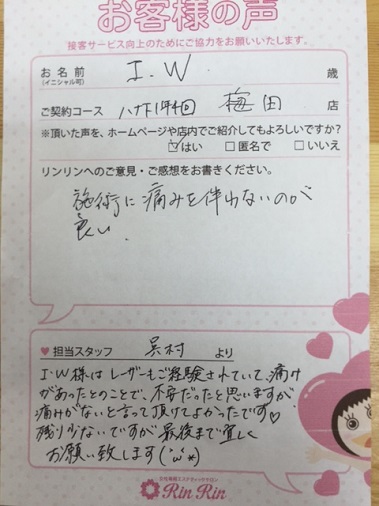 お客様の声
接客サービス向上のためにご協力をお願いいたします。
お名前 I.W 歳
(イニシャル可)
ご契約コース ハナ下 14回 梅田 店
※頂いた声を、ホームページや店内でご紹介してもよろしいですか?
☑はい □匿名で □いいえ
リンリンへのご意見・ご感想をお書きください。
施術に痛みを伴わないのが
良い.
♥担当スタッフ 呉村 より
I・W様はレーザーもご経験されていて、痛け
があったとのことで、不安だったと思いますが
痛けがないと言って頂けてよかったです♡
残り少ないですが最後まで宜しく
お願い致します(˙ω˙*)
Rin Rin